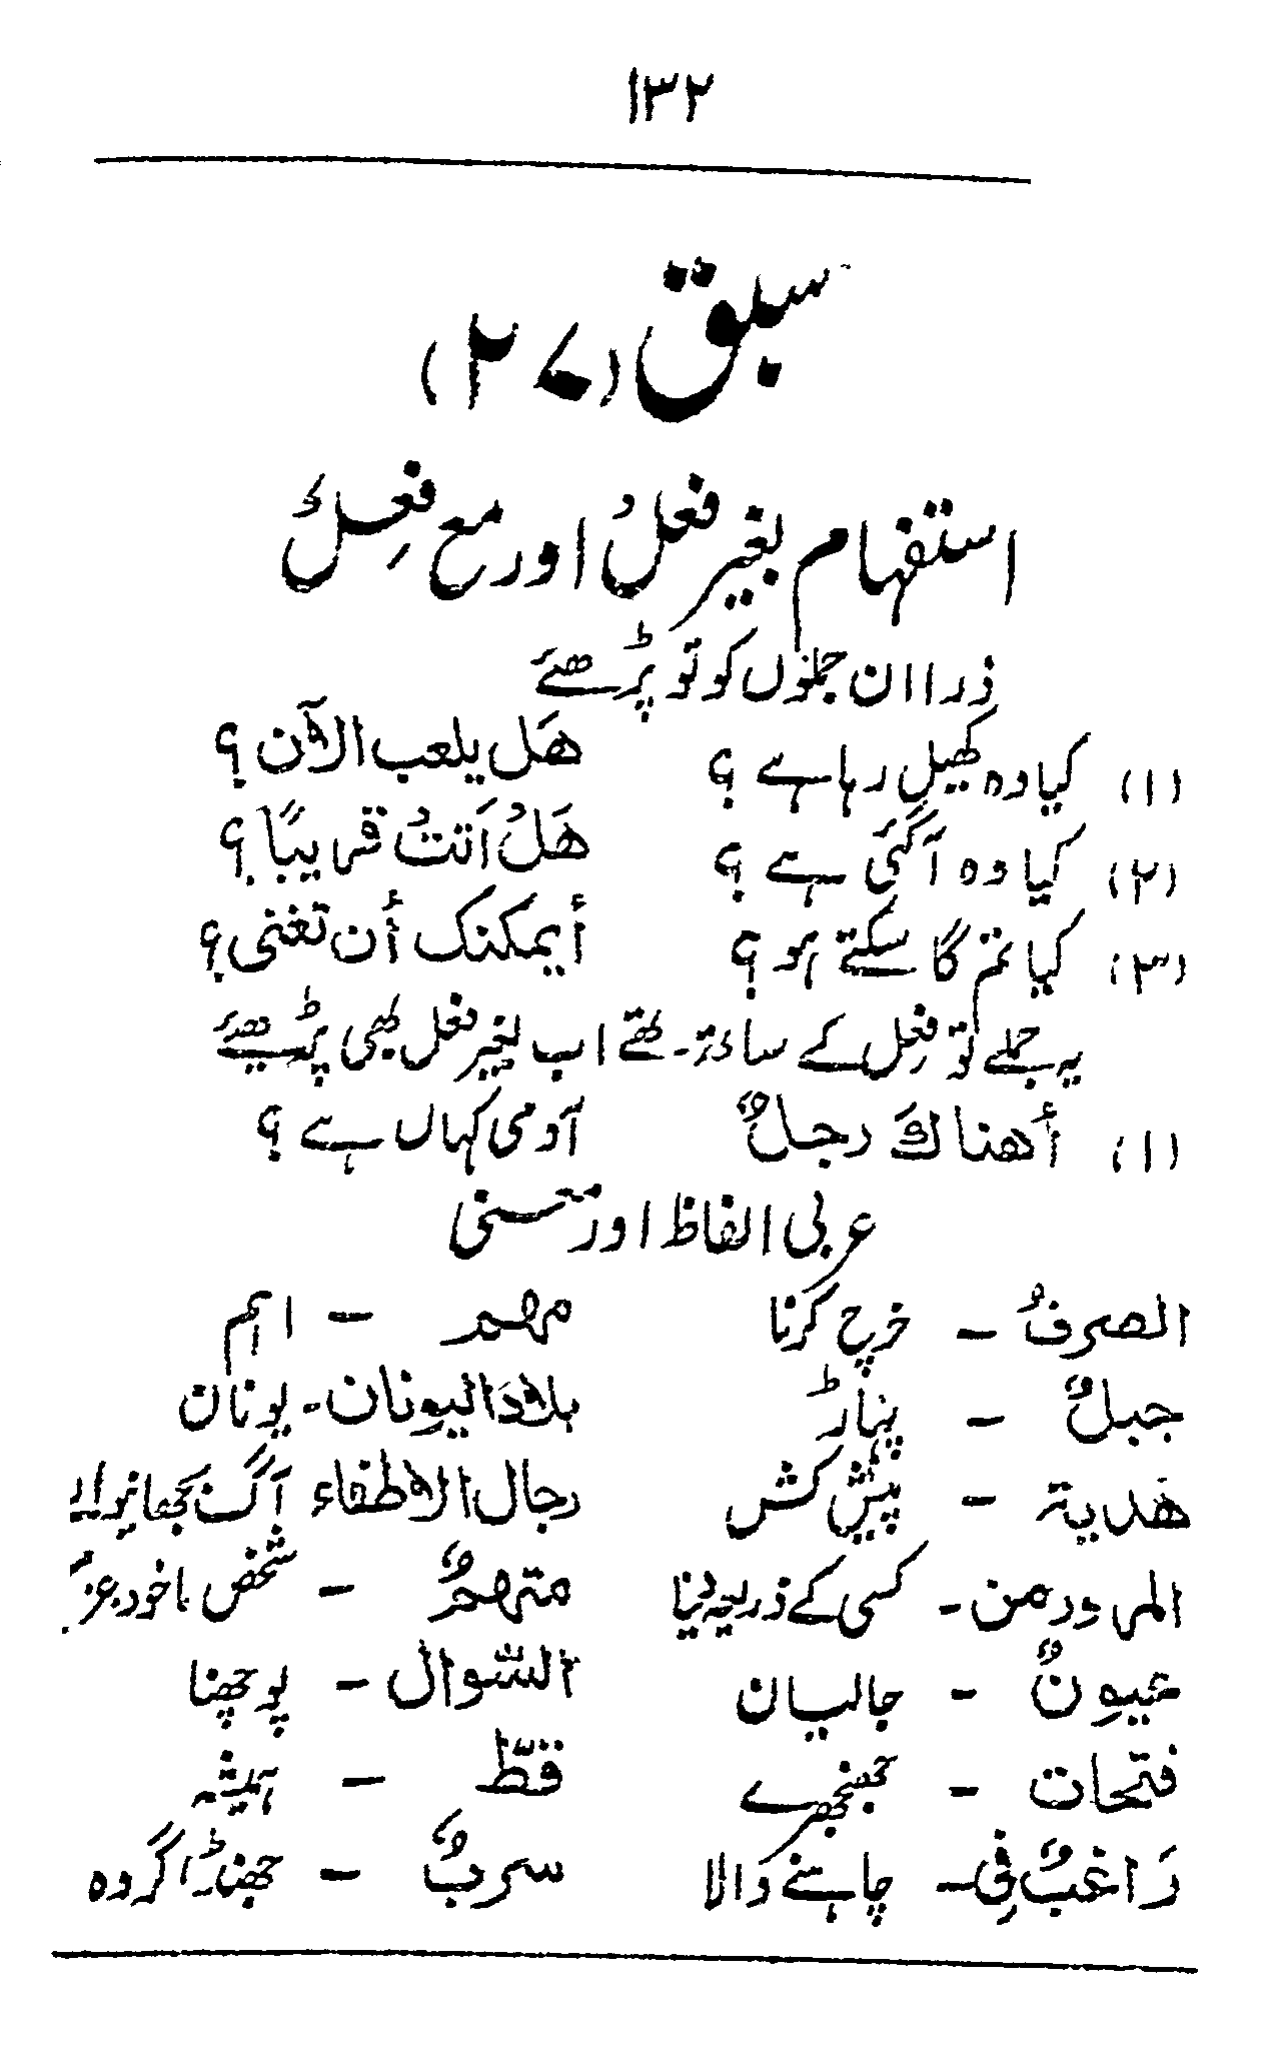 ۱۳۲
سبق (۲۷)
استفہام بغیر فعلُ اور مع فِعلُ
ذرا ان جملوں کو تو پڑھئے
(۱) کیا وہ کھیل رہا ہے ؟ هَل يلعب الآن ؟
(۲) کیا وہ آ گئی ہے ؟ هَلُ اَتتُ قريبًا ؟
(۳) کیا تم گا سکتے ہو ؟ أيمكنك أن تغني ؟
یہ جملے تو فِعل کے ساتھ تھے اب بغیر فعل بھی پڑھیئے
(۱) أهناكَ رجلٌ آدمی کہاں ہے ؟
عربی الفاظ اور معنی
الصرفُ – خرچ کرنا مهم – اہم
جبلٌ – پہاڑ بلادَ اليونان - یونان
هدية – پیش کش رجال الاطفاء آگ بجھانیوالا
المرور من - کسی کے ذریعہ دینا متهمٌ – شخص ماخوذ
عيونٌ – جالیان السّوال – پوچھنا
فتحات – جھنجھرے قطّ – ہمیشہ
رَاغبٌ فِى – چاہنے والا سربٌ – جھنڈا گروہ